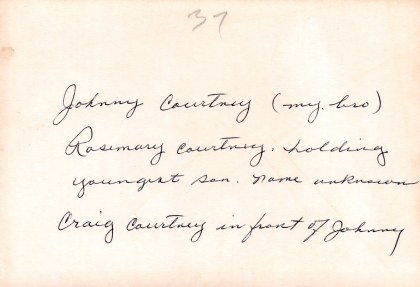 37
Johnny Courtney (my bro)
Rosemary Courtney. holding
youngest son. name unknown
Craig Courtney in front of Johnny